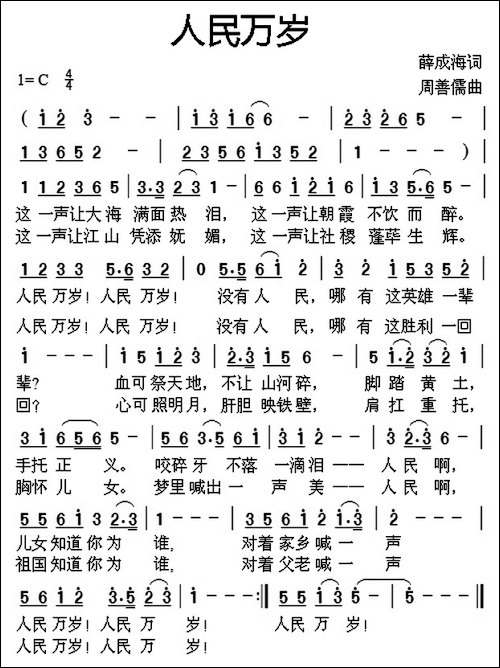 人民万岁
薛成海词
1=C 4/4
周善儒曲
( 1 2 3 - - | 1 3 1 6 6 - | 2 3 2 6 5 - |
1 3 6 5 2 - | 2 3 5 6 1 3 5 2 | 1 - - - ) |
1 1 2 3 6 5 | 3·3 2 3 1 - | 6 6 1 2 1 6 | 1 3 5·6 5 - |
这一声让大海 满面热 泪, 这一声让朝霞 不饮而 醉。
这一声让江山 凭添妩 媚, 这一声让社稷 蓬荜生 辉。
1 2 3 3 5·6 3 2 | 0 5 5 6 1 | 2 · 3 2 | 1 5 3 5 2 |
人民万岁! 人民万岁! 没有人 民, 哪 有 这英雄一辈
人民万岁! 人民万岁! 没有人 民, 哪 有 这胜利一回
1 - - - | 1 5 1 2 3 | 2·3 1 5 - | 5 1·2 3 2·3 |
辈? 血可祭天地, 不让山河碎, 脚踏黄土,
回? 心可照明月, 肝胆映铁壁, 肩扛重托,
3 1 6 5 6 5 - | 5 6 3·5 6 1 | 3 2 · - | 1 2·3 6 - |
手托正 义。 咬碎牙 不落 一滴泪—— 人民啊,
胸怀儿 女。 梦里喊出一 声 美—— 人民啊,
5 5 6 1 3 2·3 | 1 - - - | 3 5 6 1 2 1·3 | 2 - - - |
儿女知道你为 谁, 对着家乡喊一 声
祖国知道你为 谁, 对着父老喊一 声
5 6 1 2 3·5 2 3 | 1 - - - :| 5 5 1 3 5 - | 5 - - - |
人民万岁! 人民万 岁! 人民万 岁!
人民万岁! 人民万 岁!